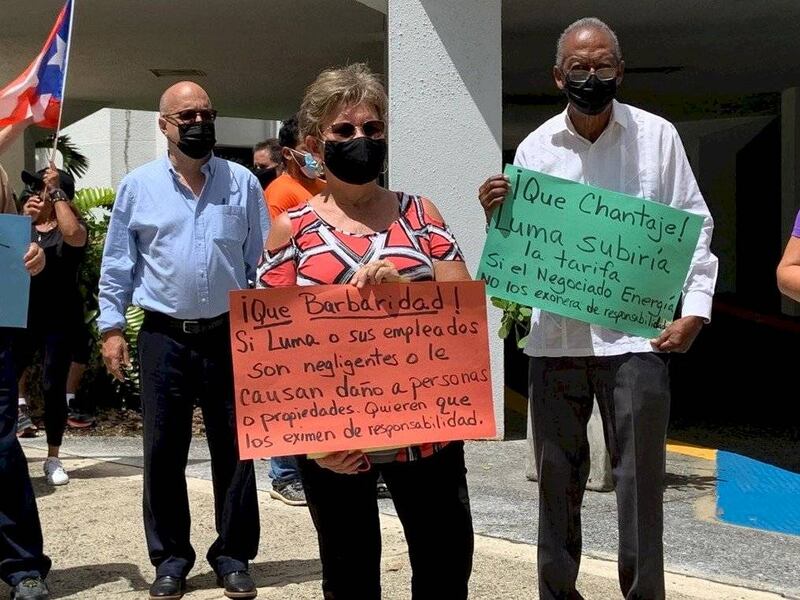 ¡Que Barbaridad!
Si Luma o sus empleados
son negligentes o le
causan daño a personas
o propiedades. Quieren que
los eximen de responsabilidad.
¡Que Chantaje!
Luma subiría
la tarifa
Si el Negociado Energía
No los exonera de responsabilidad